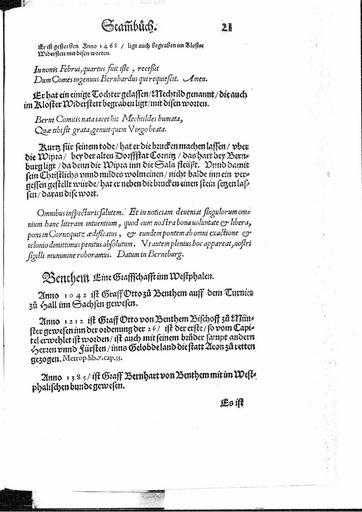 Stam̃būch. 21
Er ist gestorben Anno 1468 / ligt auch begraben im Kloster
Widerstett mit disen worten.
In nonis Februi, quartus fuit iste, recessit
Dum Comes ingenuus Bernhardus qui requiescit. Amen.
Er hat ein einige Tochter gelassen / Mechtild genannt / die auch
im Kloster Widerstett begraben ligt / mit disen worten.
Bernt Comitis nata iacet hic Mechteldes humata,
Quæ tibi sit grata, genuit quem Virgo beata.
Kurtz für seinem tode / hat er die brucken machen lassen / vber
die Wipra / bey der alten Dorffstat Corning / das hart bey Bern-
burg ligt / da denn die Wipra inn die Sala fleüst. Vnnd damit
sein Christlichs vnnd mildes wolmeinen / nicht balde inn ein ver-
gessen gestellt würde / hat er neben die brucken einen stein setzen las-
sen / daran dise wort.
Omnibus inspecturis salutem. Et in noticiam deveniat singulorum om-
nium hanc literam intuentium, quod cum nostra bona voluntate & libera,
pons in Cornequitz ædificatus, & eundem pontem ab omni exactione &
telonio dimittimus penitus absolutum. Vt autem plenius hoc appareat, nostri
sigilli munimine roboramus. Datum in Berneburg.
Benthem Eine Graffschafft inn Westphalen.
Anno 1042 ist Graff Otto zů Benthem auff dem Turnier
zů Hall inn Sachsen gewesen.
Anno 1212 ist Graff Otto von Benthem Bischoff zů Mün-
ster gewesen inn der ordenung der 26 / ist der erste / so vom Capi-
tel erwehlet ist worden / ist auch mit seinem brůder sampt andern
Herzen vnnd Fürsten / inns Gelobde land die statt Acon zů retten
gezogen. Metrop. lib. 7. cap. 33.
Anno 1385 / ist Graff Bernhart von Benthem mit im West-
phalischen bunde gewesen.
Es ist